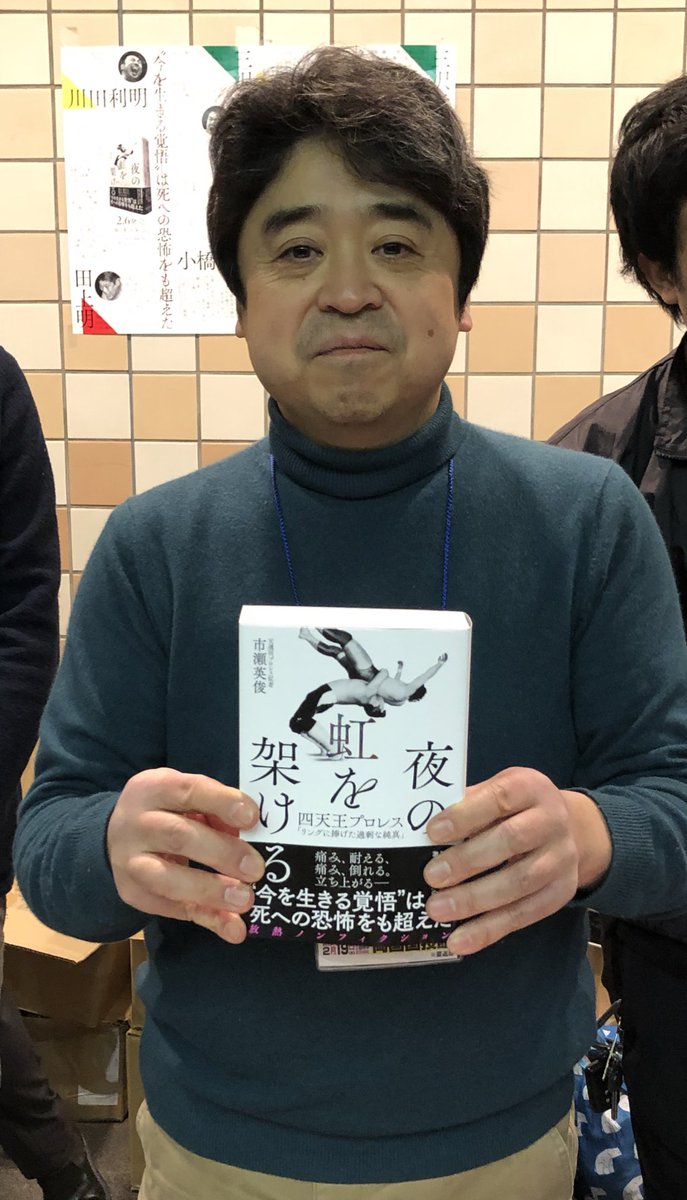 川田利明
“今を生きる覚悟”は死への恐怖をも超えた
夜の
虹を
架け
る
2.6
小橋
田上明
元週刊プロレス記者
市瀬英俊
夜の
虹を
架ける
四天王プロレス
「リングに捧げた過剰な純真」
痛み、耐える。
痛み、倒れる。
立ち上がる――
“今を生きる覚悟”は
死への恐怖をも超えた
放熱ノンフィクション
2月19日